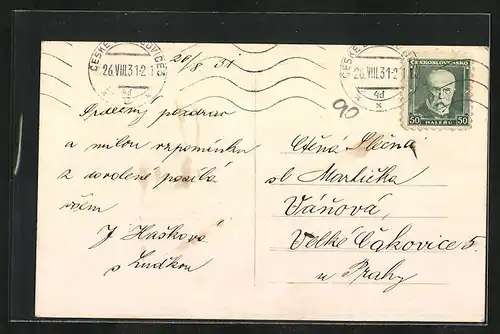 ČESKÉ BUDĚJOVICE 2
26.VIII.31-21
4d
26/8 31
Srdečný pozdrav
a milou vzpomínku
z dovolené posílá
všem
J Hašková
s Luďkou
ČESKÉ
26.VIII.31-21
4d
ČESKOSLOVENSKO
50 HALÉŘŮ 50
90
Ctěná Slečna
sl Marlička
Váňová,
Velké Čakovice 5.
u Prahy